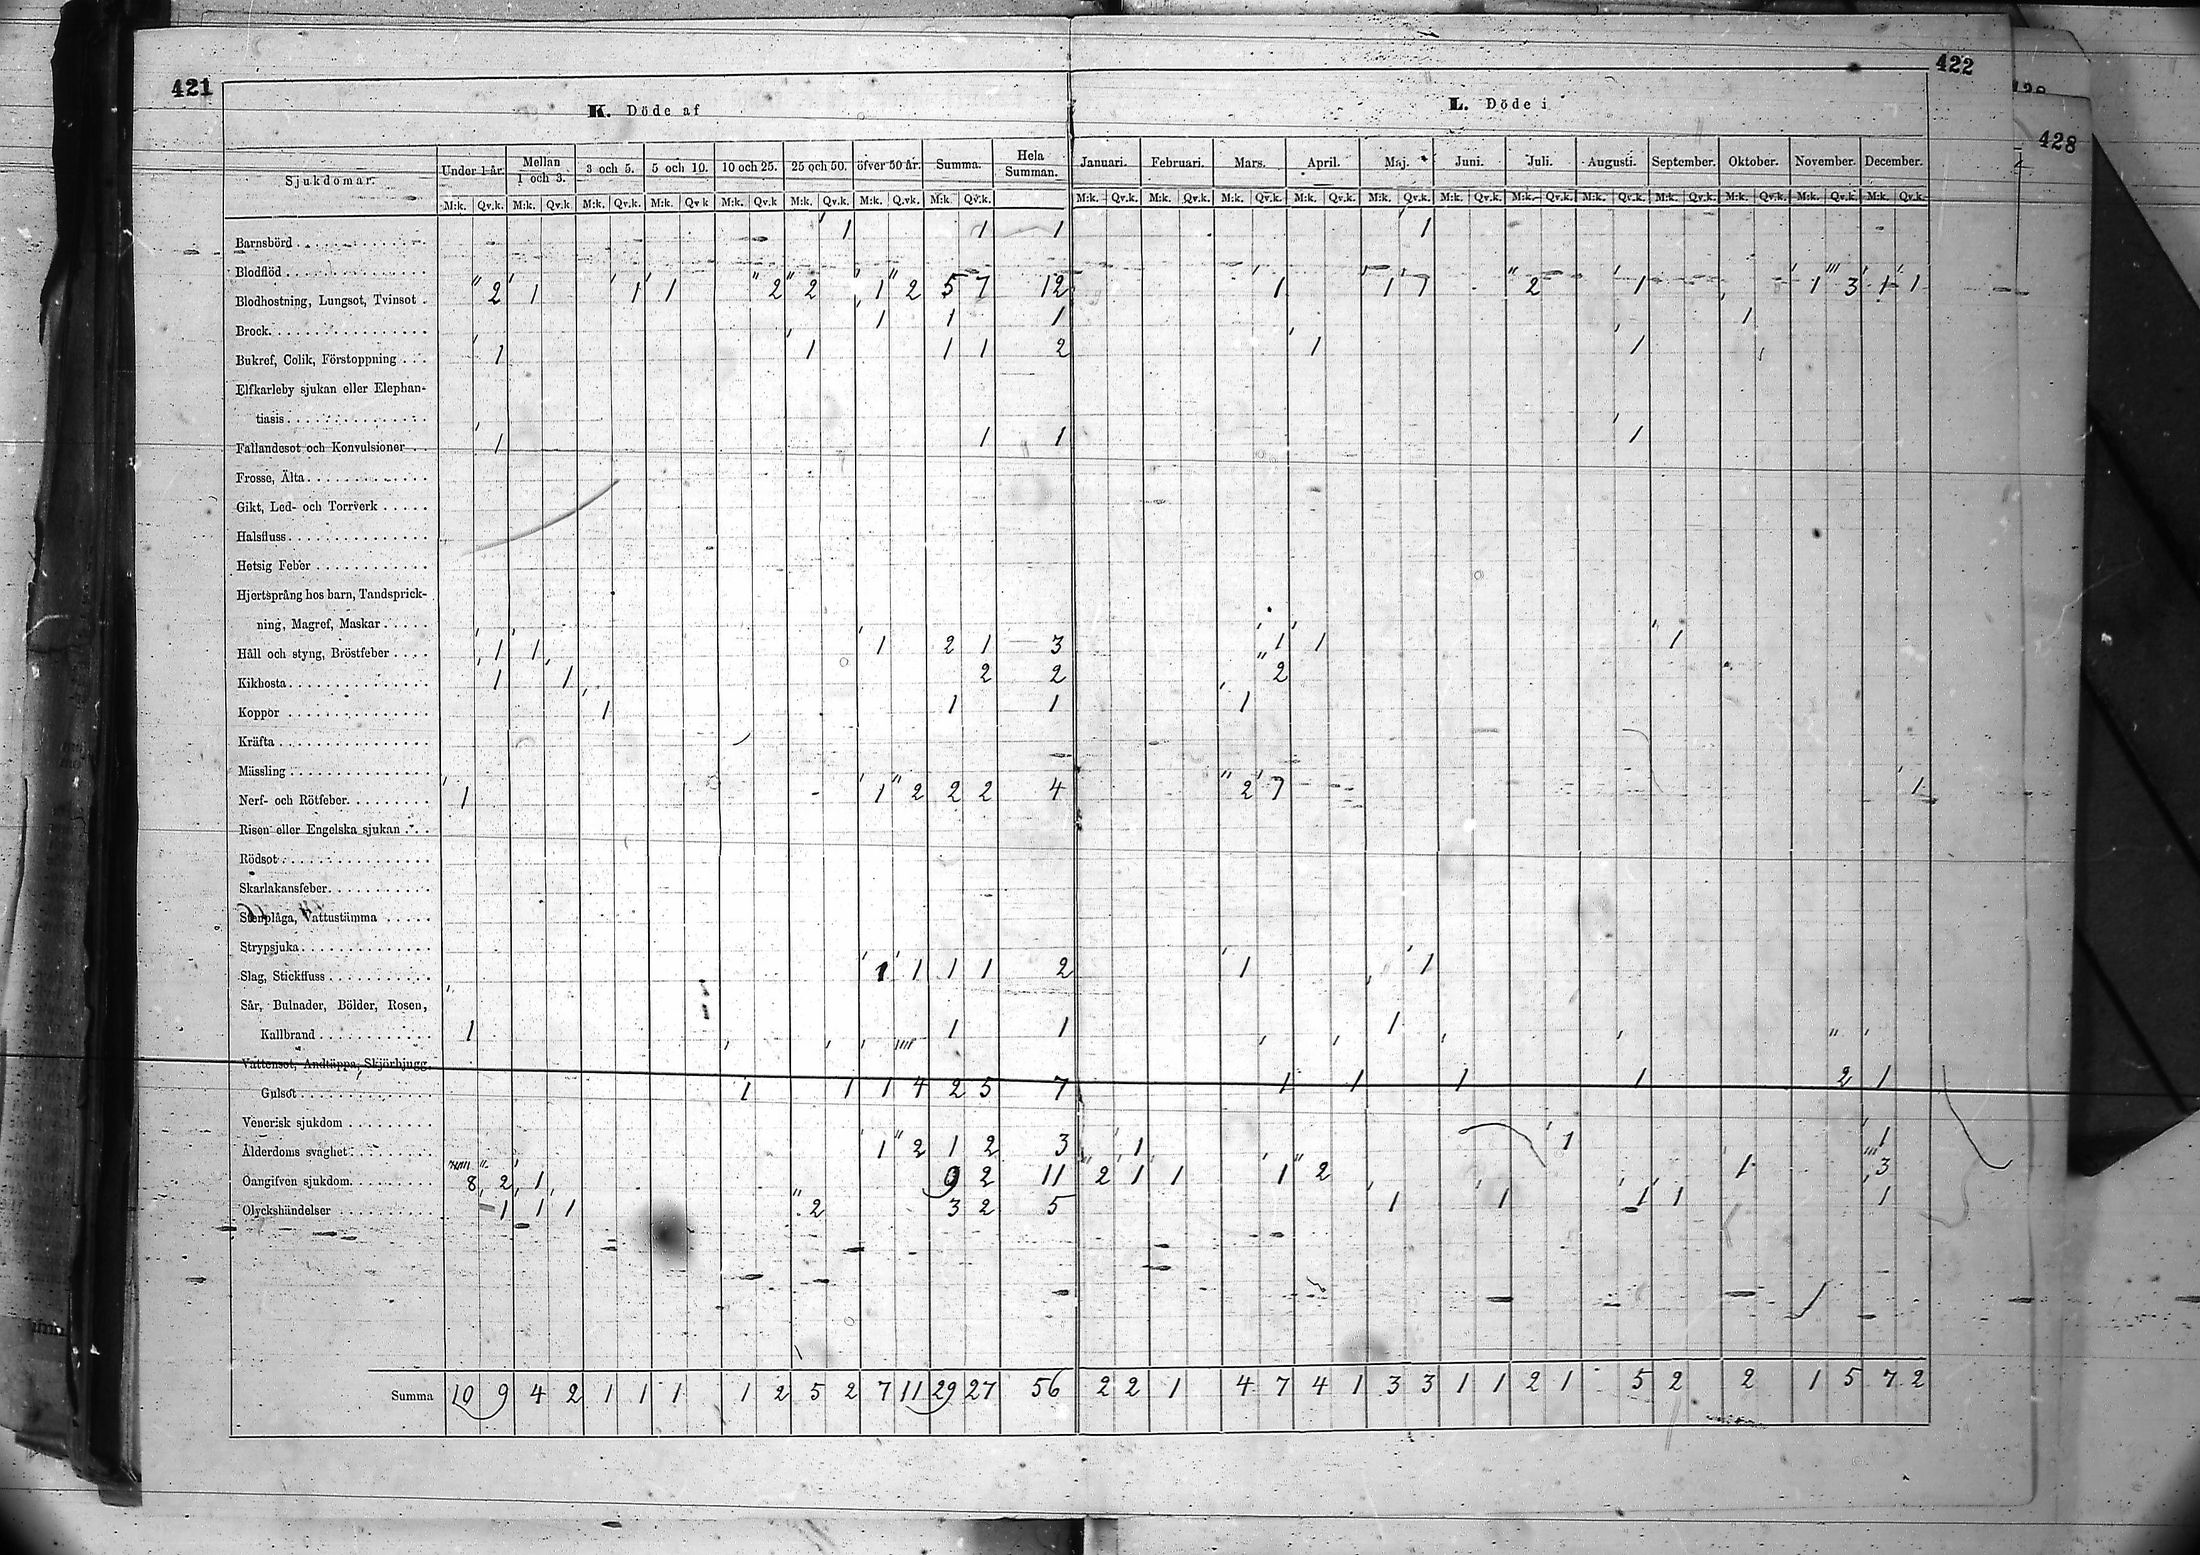 421
422
428
K. Döde af
L. Döde i
Sjukdomar. Under 1 år. Mellan 1 och 3. 3 och 5. 5 och 10. 10 och 25. 25 och 50. öfver 50 år. Summa. Hela Summan. Januari. Februari. Mars. April. Maj. Juni. Juli. Augusti. September. Oktober. November. December.
M:k. Qv.k. M:k. Qv.k M:k. Qv.k. M:k. Qv k M:k. Qv.k M:k. Qv.k M:k. Q.vk. M:k. Qv.k. M:k. Qv.k. M:k. Qv.k. M:k. Qv.k. M:k. Qv.k. M:k. Qv.k. M:k. Qv.k. M:k. Qv.k. M:k. Qv.k. M:k. Qv.k. M:k. Qv.k. M:k. Qv.k. M:k. Qv.k.
Barnsbörd 1 1 1 1
Blodflöd
Blodhostning, Lungsot, Tvinsot 2 1 1 1 2 2 1 2 5 7 12 1 1 1 2 1 1 3 1 1
Brock 1 1 1 1
Bukref, Colik, Förstoppning 1 1 1 1 2 1 1
Elfkarleby sjukan eller Elephan-
tiasis
Fallandesot och Konvulsioner 1 1 1 1
Frosse, Älta
Gikt, Led- och Torrverk
Halsfluss
Hetsig Feber
Hjertsprång hos barn, Tandsprick-
ning, Magref, Maskar
Håll och styng, Bröstfeber 1 1 1 2 1 3 1 1 1
Kikhosta 1 1 2 2 2
Koppor 1 1 1 1
Kräfta
Mässling
Nerf- och Rötfeber 1 1 2 2 2 4 2 1 1
Risen eller Engelska sjukan
Rödsot
Skarlakansfeber
Stenplåga, Vattustämma
Strypsjuka
Slag, Stickfluss 1 1 1 1 2 1 1
Sår, Bulnader, Bölder, Rosen,
Kallbrand 1 1 1 1
Vattensot, Andtäppa, Skjörbjugg,
Gulsot 1 1 1 4 2 5 7 1 1 1 1 2 1
Venerisk sjukdom
Ålderdoms svaghet 1 2 1 2 3 1 1 1
Oangifven sjukdom 8 2 1 9 2 11 2 1 1 1 2 1 3
Olyckshändelser 1 1 1 2 3 2 5 1 1 1 1 1
Summa 10 9 4 2 1 1 1 1 2 5 2 7 11 29 27 56 2 2 1 4 7 4 1 3 3 1 1 2 1 5 2 2 1 5 7 2